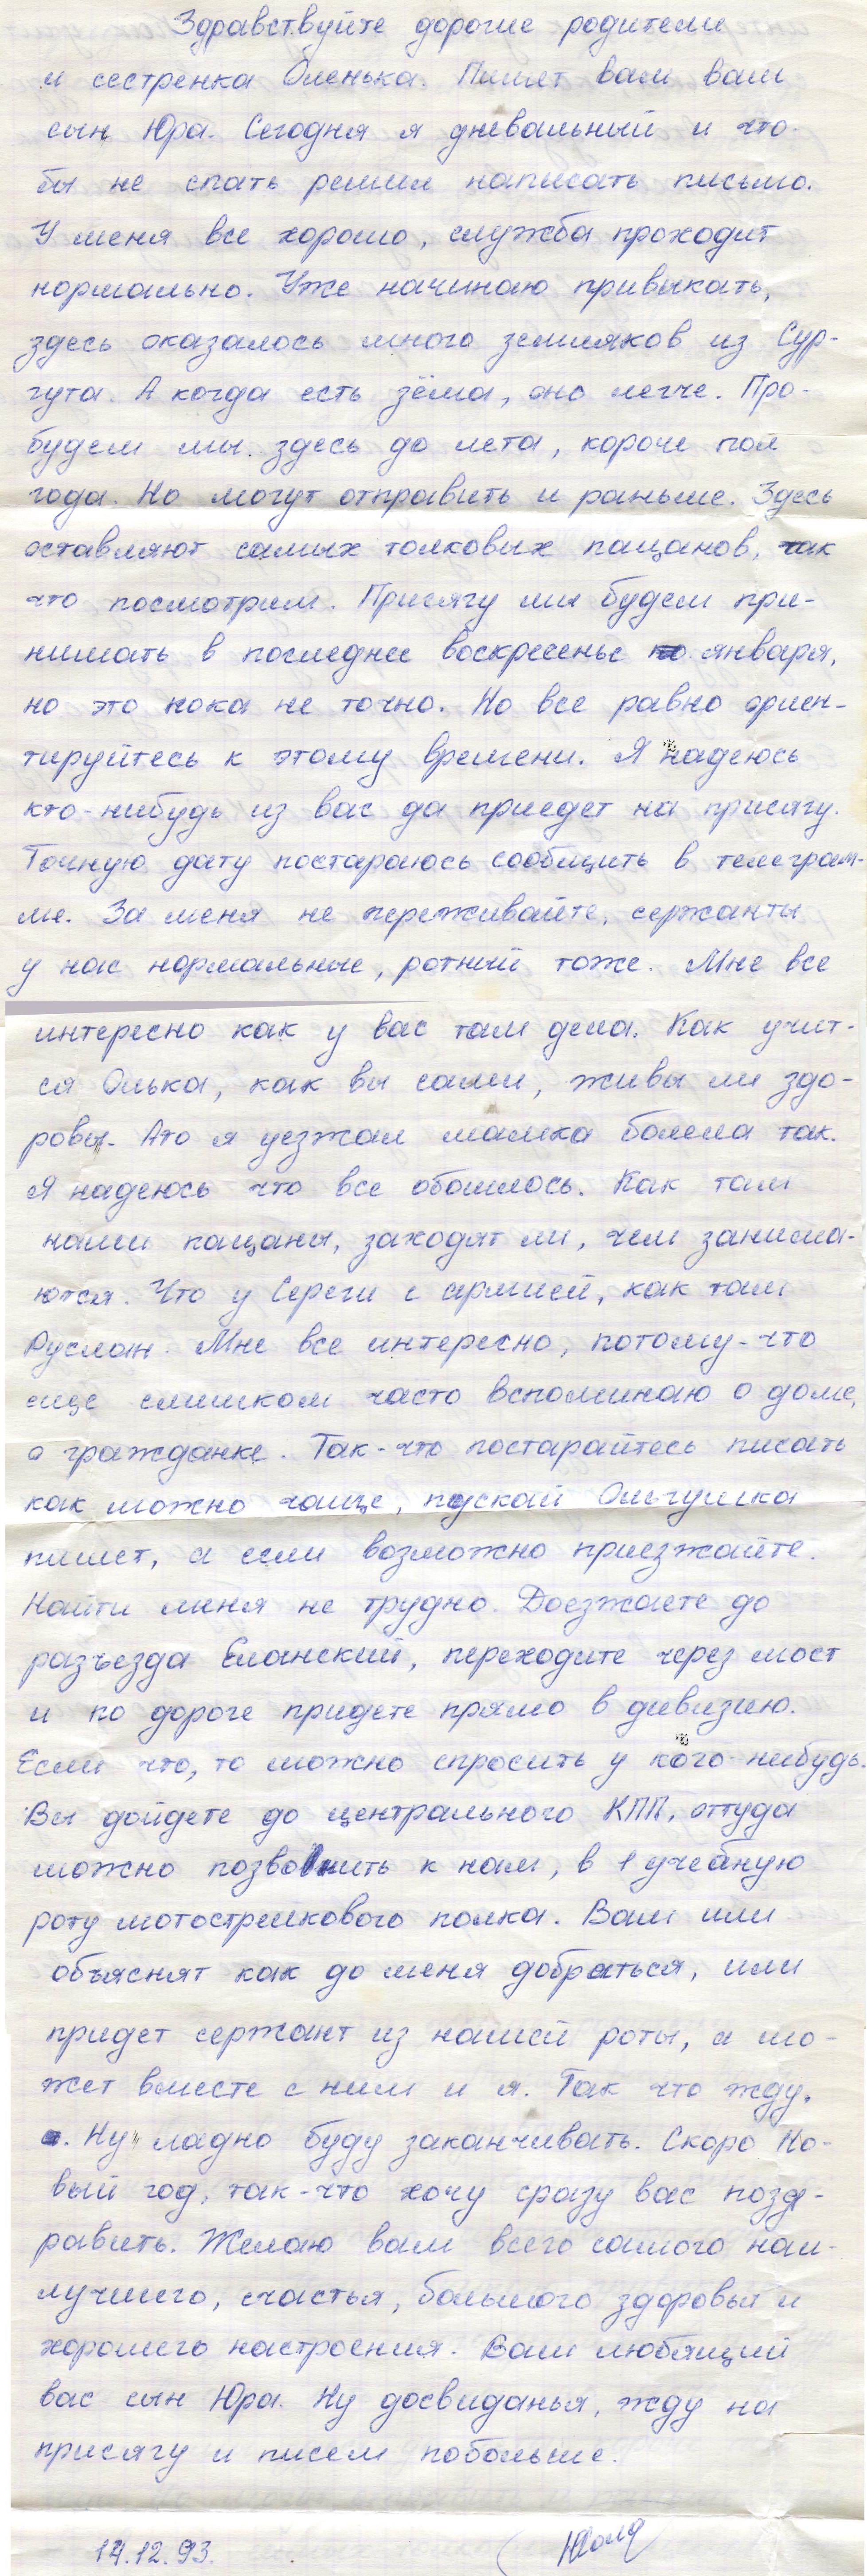 Здравствуйте дорогие родители
и сестренка Оленька. Пишет вам ваш
сын Юра. Сегодня я дневальный и что-
бы не спать решил написать письмо.
У меня все хорошо, служба проходит
нормально. Уже начинаю привыкать,
здесь оказалось много земляков из Сур-
гута. А когда есть зёма, оно легче. Про-
будем мы здесь до лета, короче пол
года. Но могут отправить и раньше. Здесь
оставляют самых толковых пацанов, так
что посмотрим. Присягу мы будем при-
нимать в последнее воскресенье января,
но это пока не точно. Но все равно ориен-
тируйтесь к этому времени. Я надеюсь
кто-нибудь из вас да приедет на присягу.
Точную дату постараюсь сообщить в телеграм-
ме. За меня не переживайте, сержанты
у нас нормальные, ротный тоже. Мне все
интересно как у вас там дела. Как учит-
ся Олька, как вы сами, живы ли здо-
ровы. Ато я уезжал мамка болела так.
Я надеюсь что все обошлось. Как там
наши пацаны, заходят ли, чем занима-
ются. Что у Сереги с армией, как там
Руслан. Мне все интересно, потому-что
еще слишком часто вспоминаю о доме,
о гражданке. Так-что постарайтесь писать
как можно чаще, пускай Ольгушка
пишет, а если возможно приезжайте.
Найти меня не трудно. Доезжаете до
разъезда Еланский, переходите через мост
и по дороге придете прямо в дивизию.
Если что, то можно спросить у кого-нибудь.
Вы дойдете до центрального КПП, оттуда
можно позвонить к нам, в 1 учебную
роту мотострелкового полка. Вам или
объяснят как до меня добраться, или
придет сержант из нашей роты, а мо-
жет вместе с ним и я. Так что жду.
Ну ладно буду заканчивать. Скоро Но-
вый год, так-что хочу сразу вас позд-
равить. Желаю вам всего самого наи-
лучшего, счастья, большого здоровья и
хорошего настроения. Ваш любящий
вас сын Юра. Ну досвиданья, жду на
присягу и писем побольше.
14.12.93.